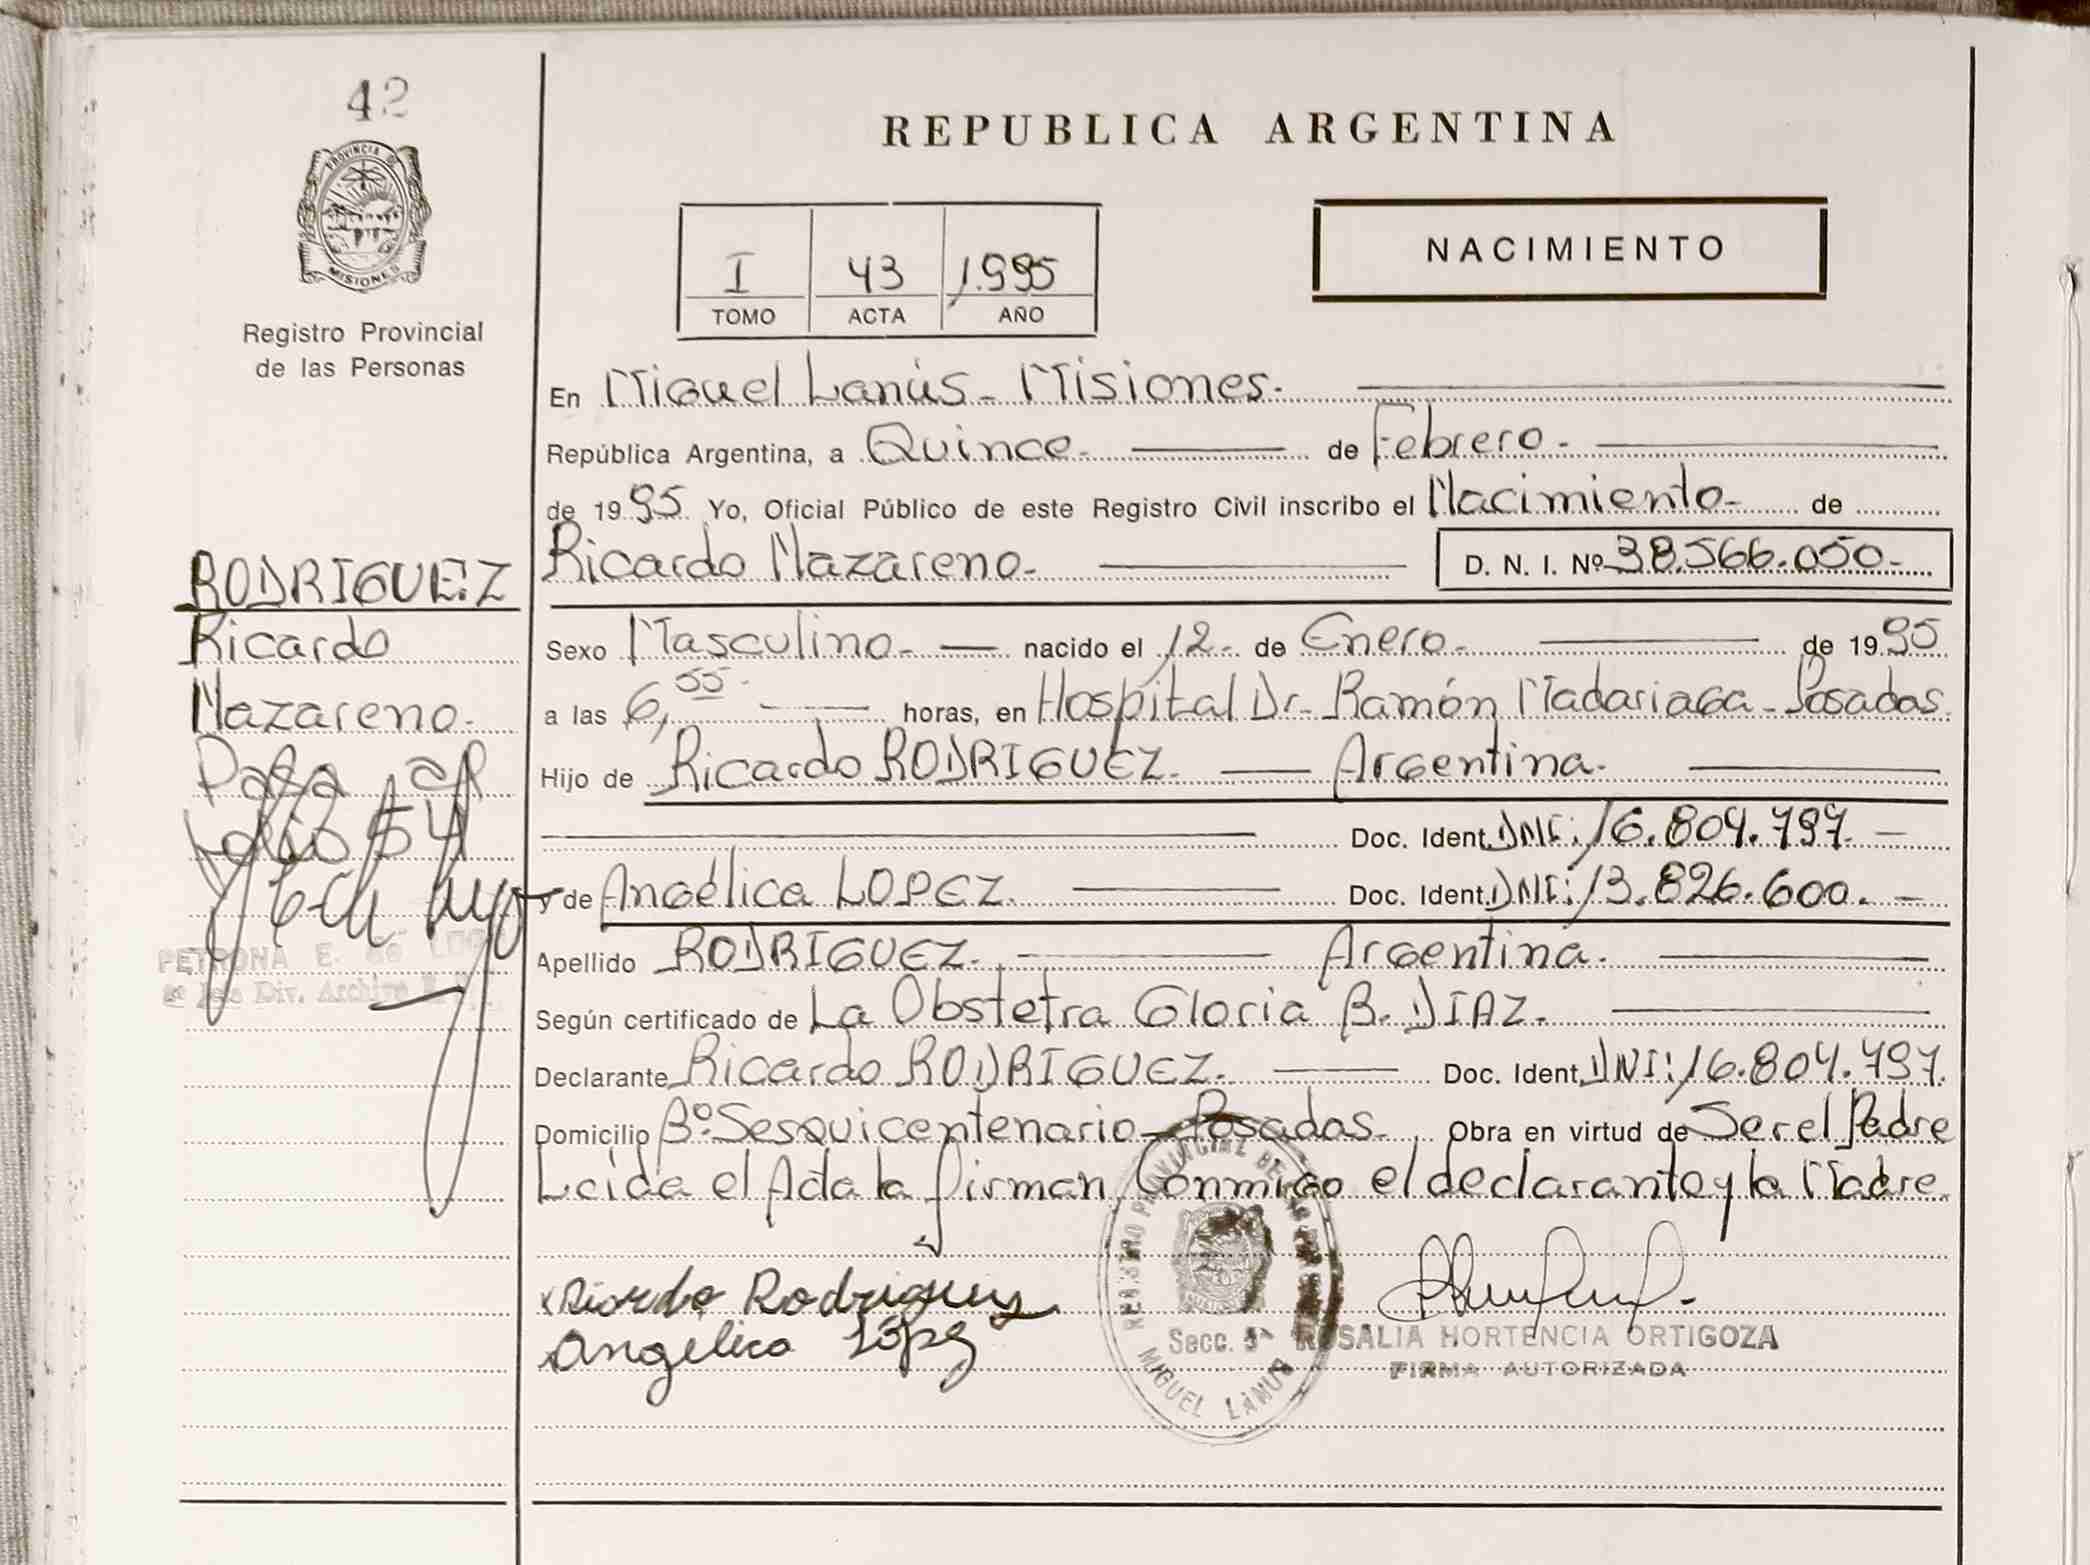 42
PROVINCIA DE
MISIONES
Registro Provincial
de las Personas
REPUBLICA ARGENTINA
I 43 1.995
TOMO ACTA AÑO
NACIMIENTO
En Miguel Lanús - Misiones.
República Argentina, a Quince. de Febrero.
de 1995 Yo, Oficial Público de este Registro Civil inscribo el Nacimiento de
Ricardo Nazareno. D. N. I. Nº 38.566.050
RODRIGUEZ
Ricardo
Nazareno.
Pasa al
folio 54
PETRONA E. de
Div. Archivo
Sexo Masculino nacido el 12 de Enero. de 1995
a las 6,55 horas, en Hospital Dr. Ramón Madariaga - Posadas.
Hijo de Ricardo RODRIGUEZ. Argentina.
Doc. Ident. DNI: 16.804.797.
y de Angélica LOPEZ. Doc. Ident. DNI: 13.826.600.
Apellido RODRIGUEZ. Argentina.
Según certificado de La Obstetra Gloria B. DIAZ.
Declarante Ricardo RODRIGUEZ. Doc. Ident. DNI: 16.804.797.
Domicilio Bº Sesquicentenario - Posadas. Obra en virtud de Ser el Padre
Leida el Acta la firman Conmigo el declarante y la Madre.
Ricardo Rodriguez
Angelica López
REGISTRO PROVINCIAL DE LAS
Secc. 5ª
MIGUEL LANUS
ROSALIA HORTENCIA ORTIGOZA
FIRMA AUTORIZADA